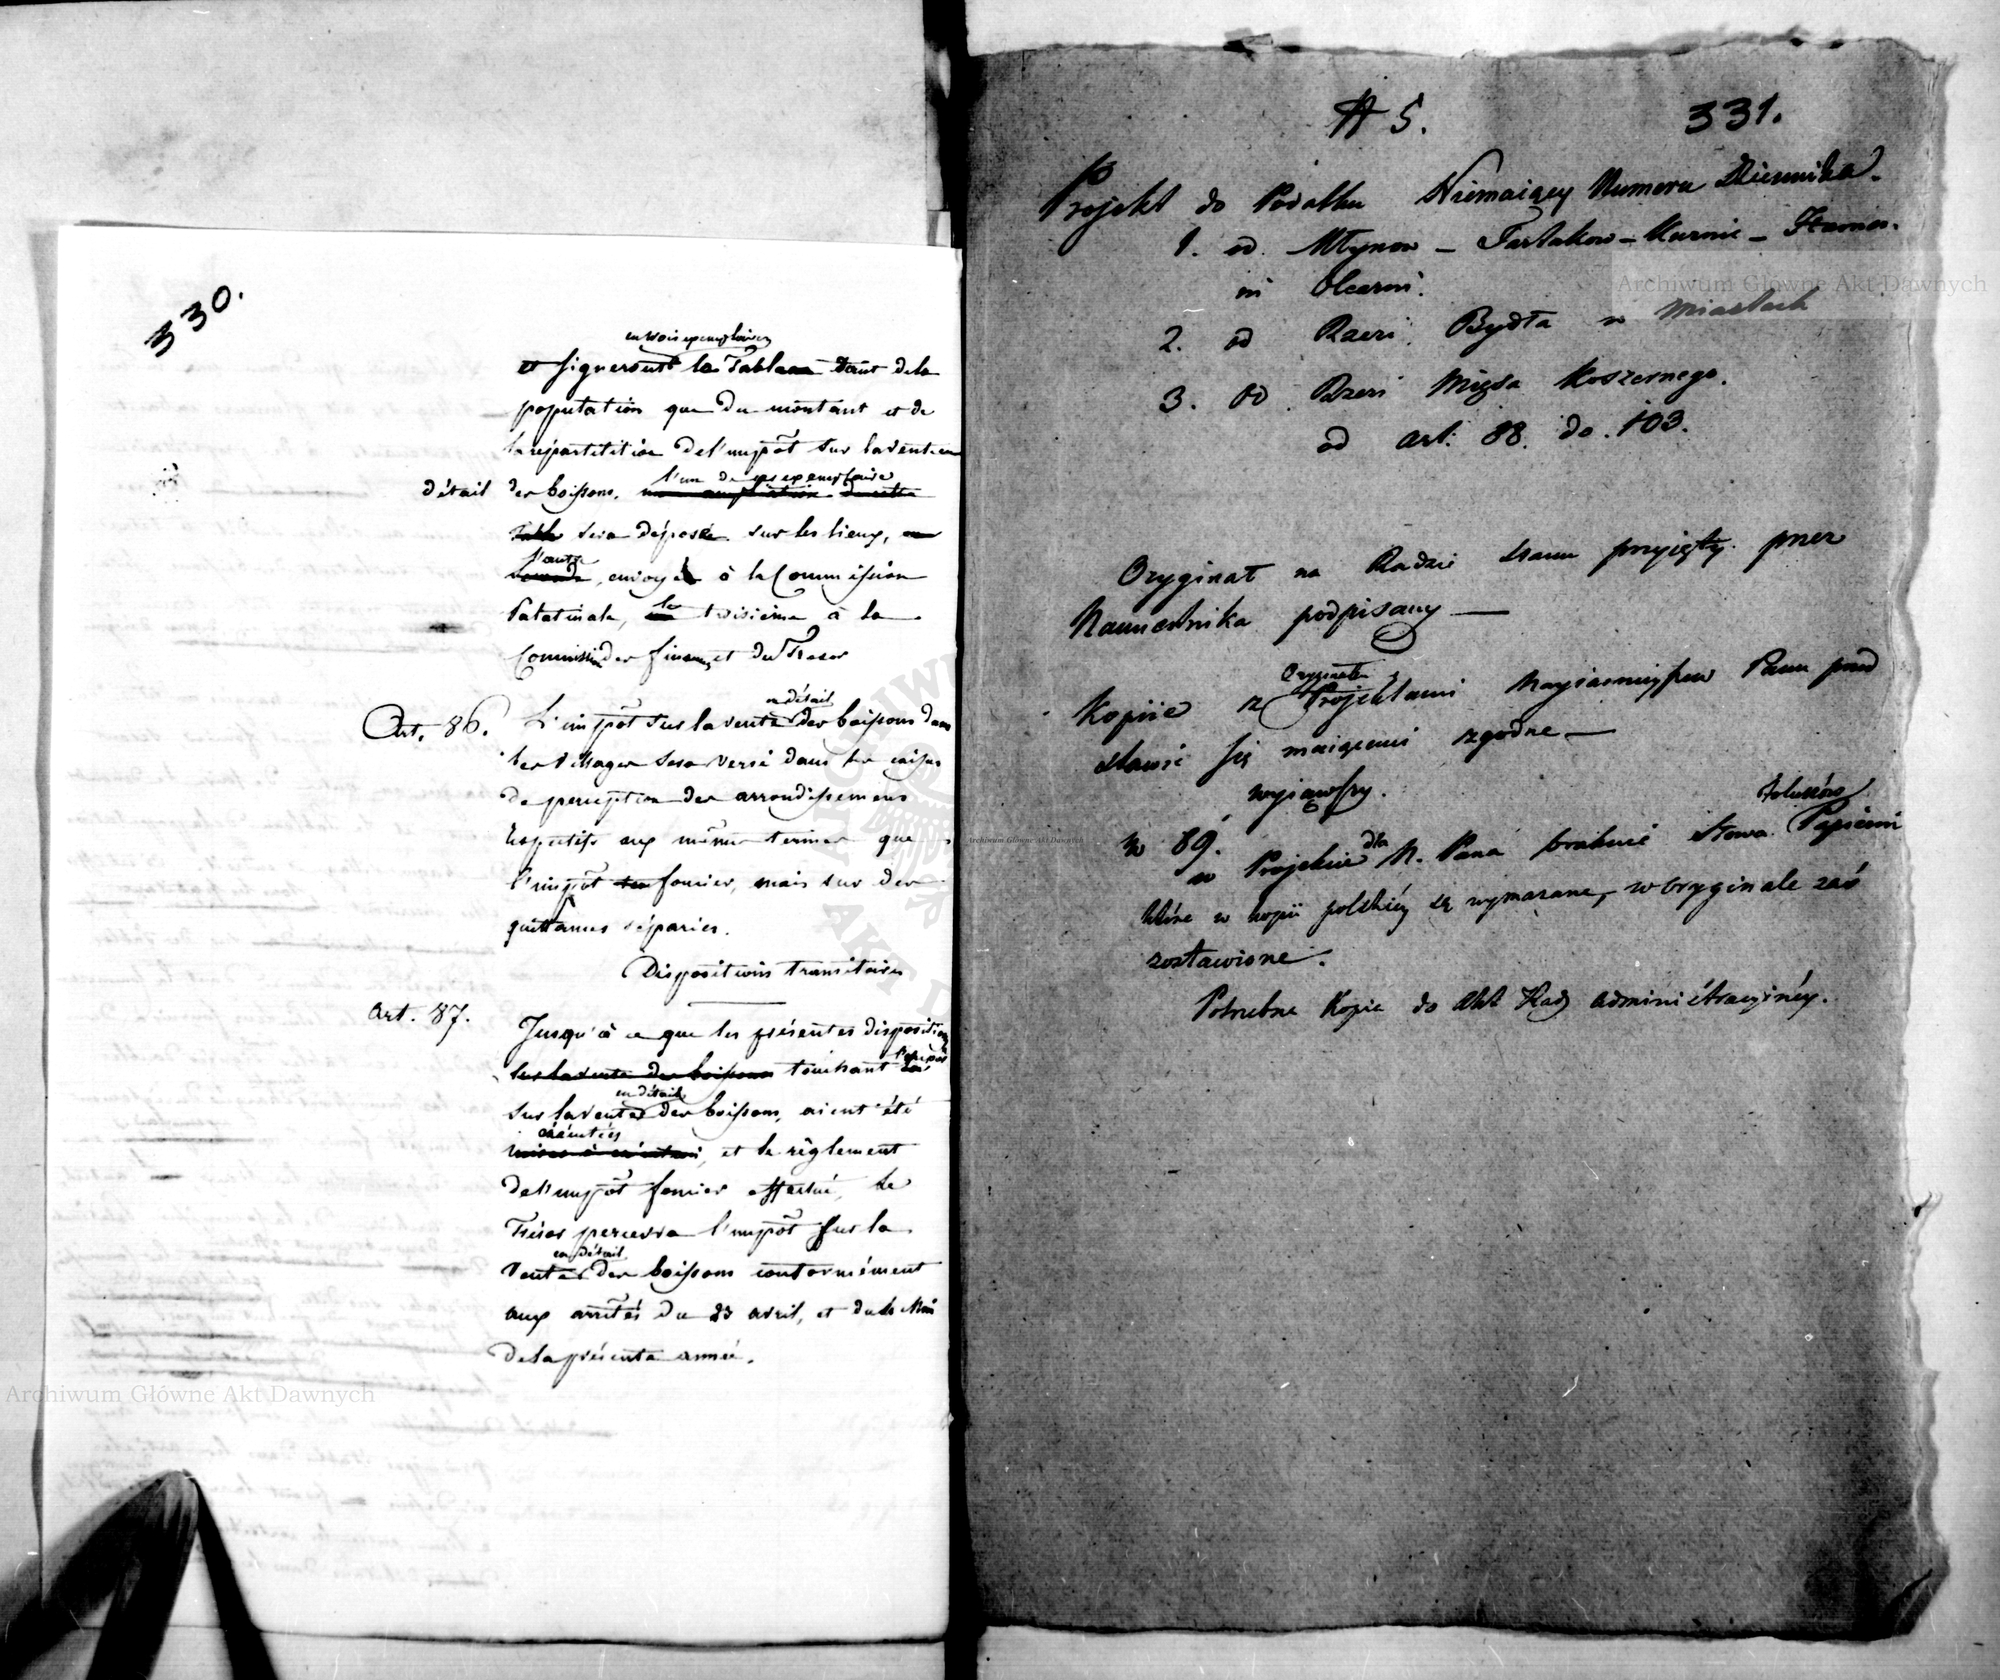 330.
en trois exemplaires
et signeront les Tableaux tant de la
population que du montant et de
la répartitition de l'impôt sur la vente en
détail des boissons. l'un de ces exemplaire
sera déposé sur les lieux,
l'autre
envoyé à la Commission
Palatinale, le troisième à la
Commission des finances et du Tresor
Art. 86. L'impôt sur la vente en détail des boissons dans
les villages sera versé dans les caisses
de perception des arrondissemens
respectifs aux mêmes termes que
l'impôt foncier, mais sur des
quittances séparées.
Dispositions transitoires
Art. 87. Jusqu'à ce que les présentes dispositions
sur la vente des boissons touchant l'impôt
en détail
sur la vente des boissons, aient été
exécutées
mises à exécution, et le règlement
de l'impôt foncier effectué, le
Trésor percevra l'impôt sur la
en détail
vente des boissons conformément
aux arrêtés du 23 avril, et du Mai
de la présente année.
# 5. 331.
Projekt do Podatku Niemaiący Numeru Dziennika.
1. od Młynow - Tartakow - Kuznic -
ni Olearni.
2. od Rzezi Bydła w Miastach
3. Od Rzezi Mięsa Koszernego.
od art. 88. do. 103.
Oryginał na Radzie Stanu przyięty przez
Namiestnika podpisany —
Kopiie z Projektami Nayiasnieyszemu Panu przed
stawić się maiącemi zgodne —
wyiąwszy.
N 89.
w Projekcie dla N. Pana braknie słowa
które w kopii polskiey są wymazane, w oryginale zaś
zostawione.
Potrzebna Kopia do Akt Rady Administracyiney.
Archiwum Główne Akt Dawnych
Archiwum Główne Akt Dawnych
Archiwum Główne Akt Dawnych